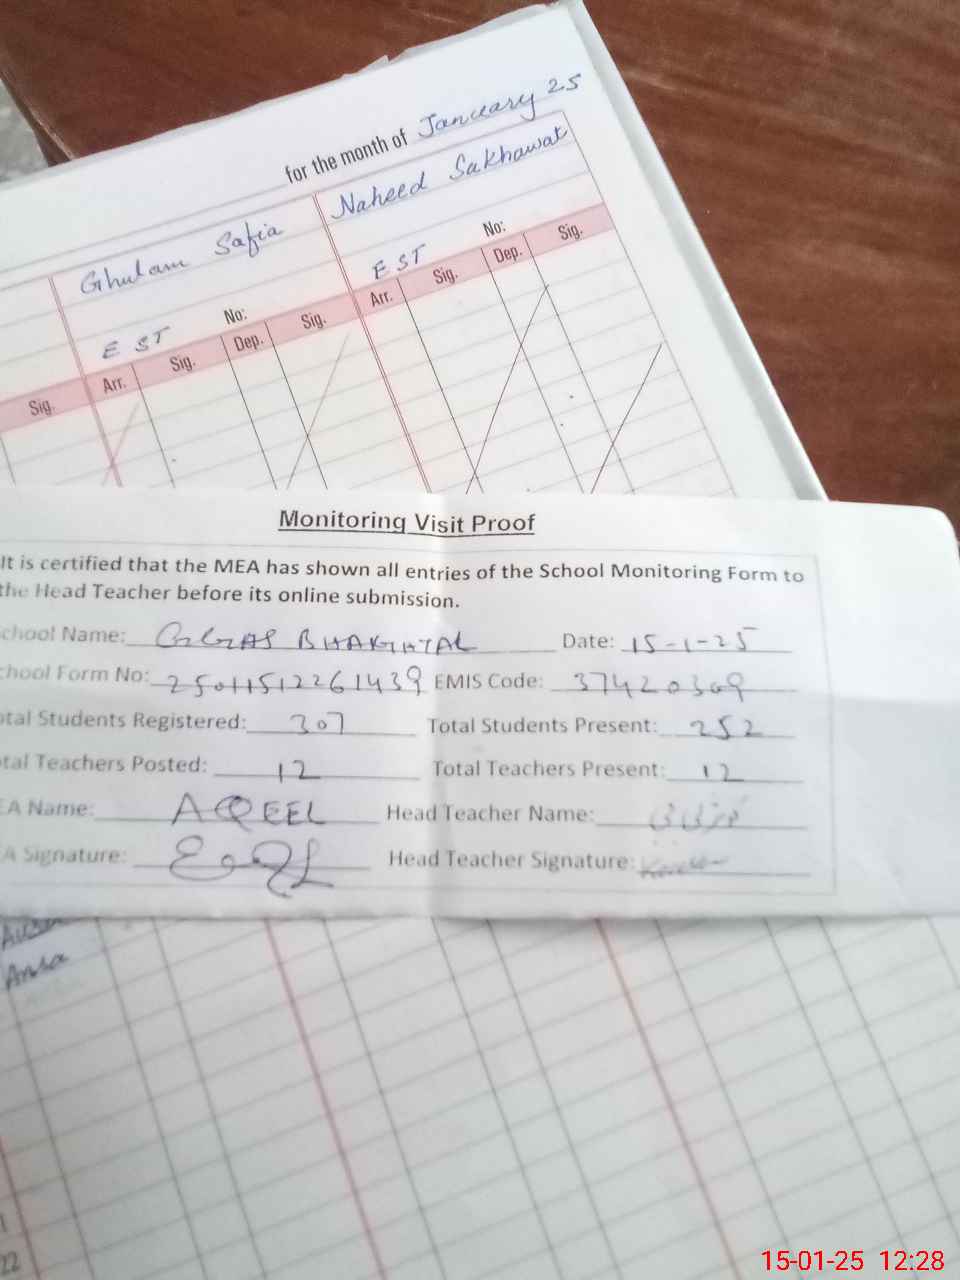 for the month of January 25
Ghulam Safia
Naheed Sakhawat
E ST No:
E ST No:
Sig. Arr. Sig. Dep. Sig. Arr. Sig. Dep. Sig.
Monitoring Visit Proof
It is certified that the MEA has shown all entries of the School Monitoring Form to
the Head Teacher before its online submission.
chool Name: BHAKHTAL Date: 15-1-25
chool Form No: 25011512261439 EMIS Code: 37420309
otal Students Registered: 307 Total Students Present: 252
tal Teachers Posted: 12 Total Teachers Present: 12
EA Name: AQEEL Head Teacher Name:
A Signature: Head Teacher Signature:
Ansa
22
15-01-25 12:28